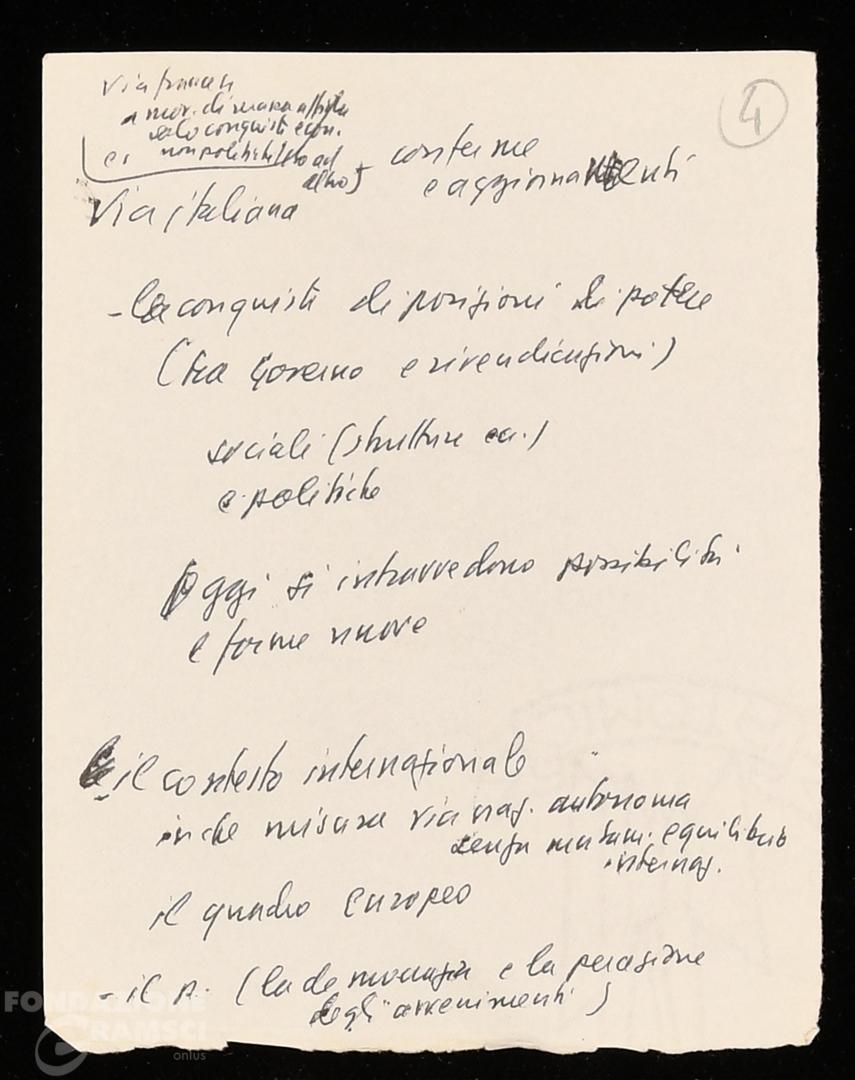 4
Via francese
mov. di massa
solo conquiste econ.
non politiche ad
altro
conferme
e aggiornamenti
Via italiana
- le conquiste di posizioni di potere
(tra Governo e rivendicazioni)
sociali (strutture ec.)
e politiche
Oggi si intravvedono possibilità
e forme nuove
- il contesto internazionale
in che misura via naz. autonoma
senza mutam. equilibrio
internaz.
il quadro europeo
- il p. (la democrazia e la
degli avvenimenti)
FONDAZIONE
GRAMSCI
onlus